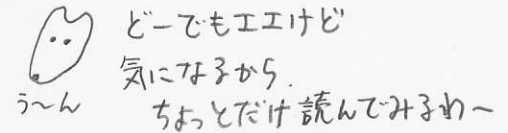 どーでもエエけど
気になるから.
ちょっとだけ読んでみるわ〜
う〜ん